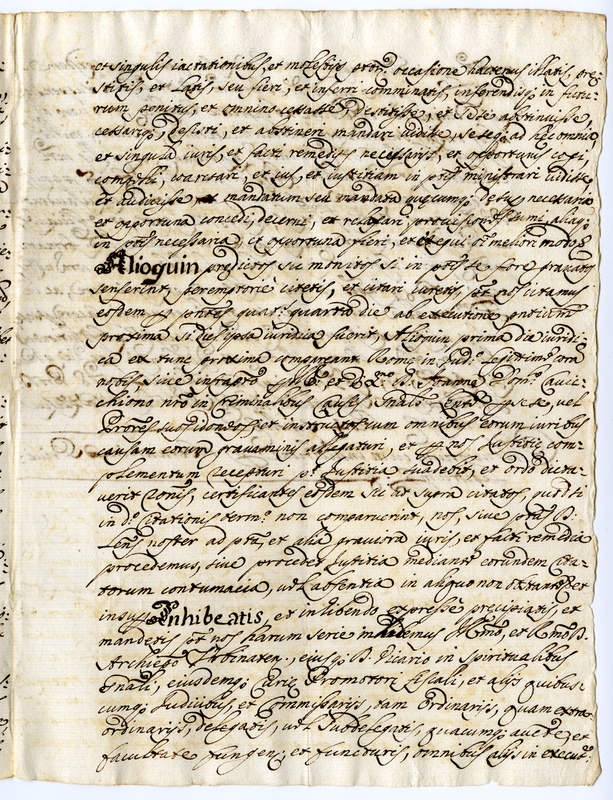 et singulis iactationibus, et molestijs prt.m occasione hactenus illatis, pre-
stitis, et datis, seu fieri, et inferri comminatis, inferendisq; in futu-
rum penitus, et omnino cessasse, destitisse, et sese abstinuisse,
cessariq;, desisti, et abstineri mandari vidisse, seseq; ad hec omnia,
et singula iuris, et facti remedijs necessarijs, et opportunis cogi,
compelli, coarctari, et ius, et iustitiam in ptis ministrari vidisse,
et audivisse mandatum seu mandata quecumq; desup. necessaria
et opportuna concedi, decerni, et relaxari, provisiones sumi, aliaq;
in ptis necessaria, et opportuna fieri, et exequi oi meliori modo
Alioquin predictos sic monitos si in ptis se fore gravatos
senserint, peremptorie citetis, et citari curetis, pt nos citamus
eosdem p. pntes quat.s quarta die ab executione pntium
proxima si dies ipsa iuridica fuerit, Alioquin prima die iuridi-
ca ex tunc proxima compareant Rome in Jud.o legitimo cora
nobis, sive infrapto et D. D. Joanne Dom.co
chiono nro in criminalibus causis vel
Prores suos idoneos et instructos cum omnibus eorum iuribus
causam eorum gravaminis allegaturi, et p. nos Justitie com-
plementum recepturi pt Justitia suadebit, et ordo dicta-
verit rationis, certificantes eosdem sic ut supra citatos, quod si
in d.o citationis term.o non comparuerint, nos, sive ptus D.
Lens noster ad pta, et alia graviora iuris, et facti remedia
procedemus, sive procedet Justitia mediante eorundem cita-
torum contumacia, vel absentia in aliquo non obstantibus et
insup. Inhibeatis, et inhibendo expresse precipiatis, et
mandetis pt nos harum serie inhibemus Illmo, et Rmo D.
Archiepo Urbinaten., eiusq; D. Vicario in spiritualibus
Gnali, eiusdemq; Curie Promotori fiscali, et alijs quibus-
cumq; Judicibus, et Commissarijs, tam ordinarijs, quam extra-
ordinarijs, delegatis, vel subdelegatis, quacumq; aucte, et
facultate fungen: et functuris, omnibus alijs in execut.e